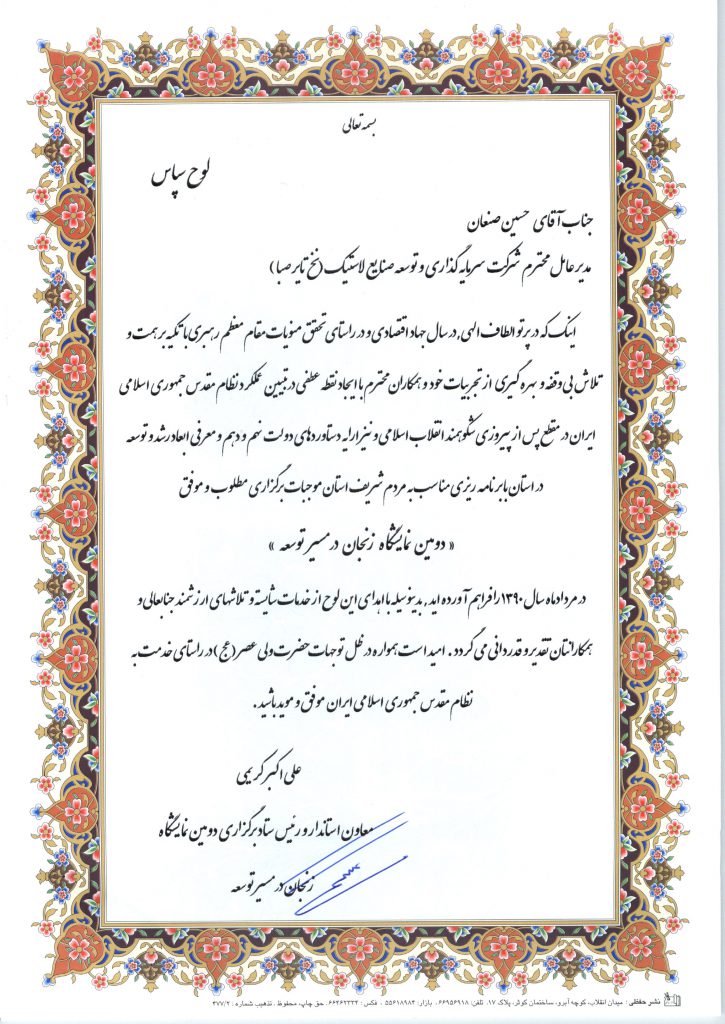 بسمه تعالی
لوح سپاس
جناب آقای حسین صنعان
مدیرعامل محترم شرکت سرمایه گذاری و توسعه صنایع لاستیک (نخ تایر صبا)
اینک که در پرتو الطاف الهی, در سال جهاد اقتصادی و در راستای تحقق منویات مقام معظم رهبری با تکیه بر همت و
تلاش بی وقفه و بهره گیری از تجربیات خود و همکاران محترم با ایجاد نقطه عطفی در تبیین عملکرد نظام مقدس جمهوری اسلامی
ایران در مقطع پس از پیروزی شکوهمند انقلاب اسلامی و نیز ارایه دستاوردهای دولت نهم و دهم و معرفی ابعاد رشد و توسعه
در استان با برنامه ریزی مناسب به مردم شریف استان موجبات برگزاری مطلوب و موفق
« دومین نمایشگاه زنجان در مسیر توسعه »
در مرداد ماه سال ۱۳۹۰ را فراهم آورده اید, بدینوسیله با اهدای این لوح از خدمات شایسته و تلاشهای ارزشمند جنابعالی و
همکارانتان تقدیر و قدردانی می گردد. امید است همواره در ظل توجهات حضرت ولی عصر (عج) در راستای خدمت به
نظام مقدس جمهوری اسلامی ایران موفق و موید باشید.
علی اکبر کریمی
معاون استاندار و رئیس ستاد برگزاری دومین نمایشگاه
زنجان در مسیر توسعه
نشر حفظی : میدان انقلاب، کوچه آبرو، ساختمان کوثر، پلاک ۱۷. تلفن: ۶۶۹۵۶۹۱۸ بازار: ۵۵۶۱۸۹۸۴ . فکس : ۶۶۴۶۲۳۳۴. حق چاپ، محفوظ . تذهیب شماره : ۳۷۷/۲